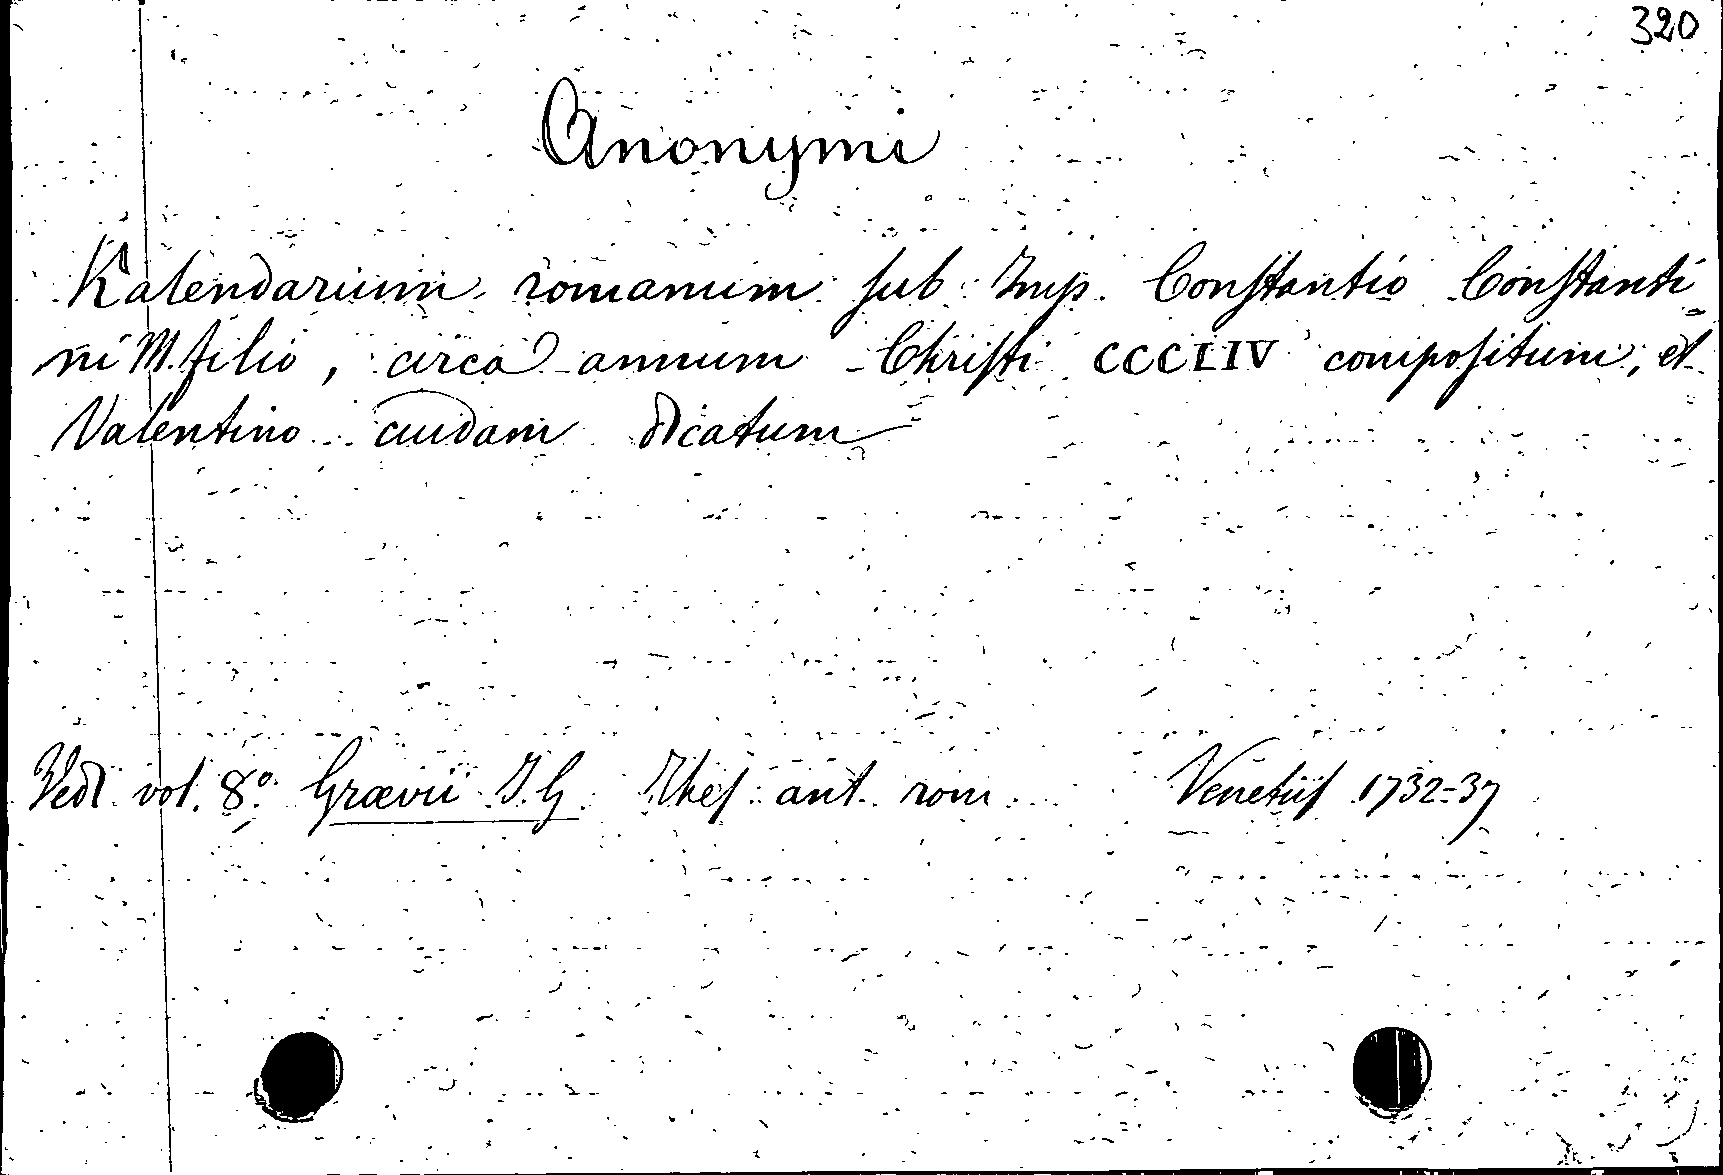 320
Anonymi
Kalendarium romanum sub Imp. Constantio Constanti-
ni M. filio, circa annum Christi CCCLIV compositum, et
Valentino cuidam dicatum
Vedi vol. 8º Grævii J. G. Thes. ant. rom. Venetiis 1732-37